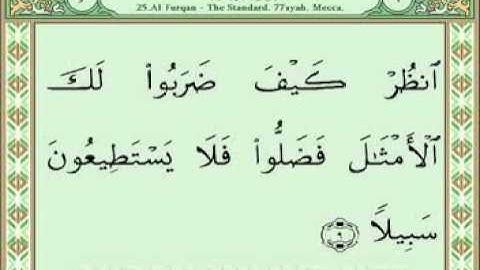 25.Al Furqan - The Standard. 77ayah. Mecca.
ٱنظُرْ كَيْفَ ضَرَبُوا۟ لَكَ
ٱلْأَمْثَـٰلَ فَضَلُّوا۟ فَلَا يَسْتَطِيعُونَ
سَبِيلًا ۝٩